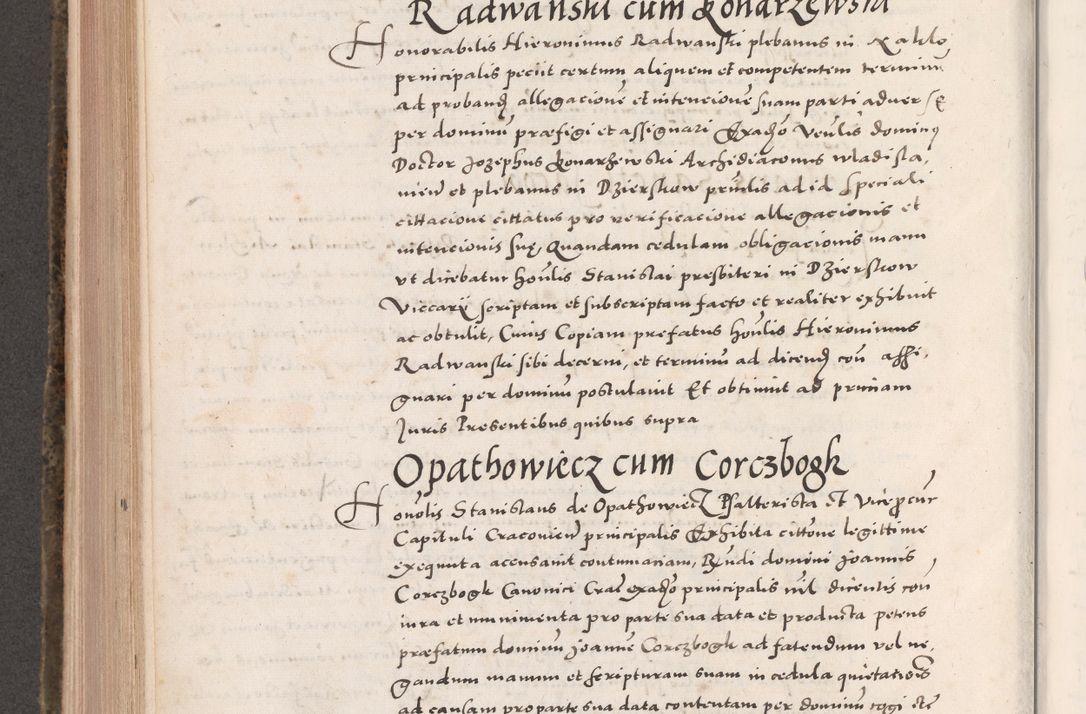 Radwanski cum Konarzewski
Honorabilis Hieronimus Radwanski plebanus in Xaklo
principalis peciit certum aliquem et competentem terminu
ad proband allegacione et intencione suam parti adversę
per dominu praefigi et assignari Ex ado Venlis dominus
Doctor Jozephus Konarzewski Archidiaconus wladisla,
vien et plebanus in Dzierskow prinlis ad id speciali
cittacione cittatus pro verificacione allegacionis et
intencionis suę, Quandam cedulam obligacionis manu
ut dicebatur honlis Stanislai presbiteri in Dzierskow
Viccarii scriptam et subscriptam facto et realiter exhibuit
ac obtulit, Cuius Copiam prefatus honlis Hieronimus
Radwanski sibi decerni, et terminu ad dicend con assi,
gnari per dominu postulavit Et obtinuit ad primam
Juris Presentibus quibus supra
Opathowiecz cum Corczbogk
Honolis Stanislaus de Opathowiecz Psalterista et Viceprocur
Capituli Cracovien principalis Exhibita cittone legittime
exequuta acusavit contumaciam, Rndi domini Joannis
Corczbogk Canonici Crac ex ado principalis nil dicentis con
iura et munimenta pro parte sua data et producta petens
praefatum dominu Joanne Corczbogk ad fatendum vel ne,
gandum manum et scripturam suam in cedula quietationis
ad causam pro parte sua data contentam per dominu cogi etc